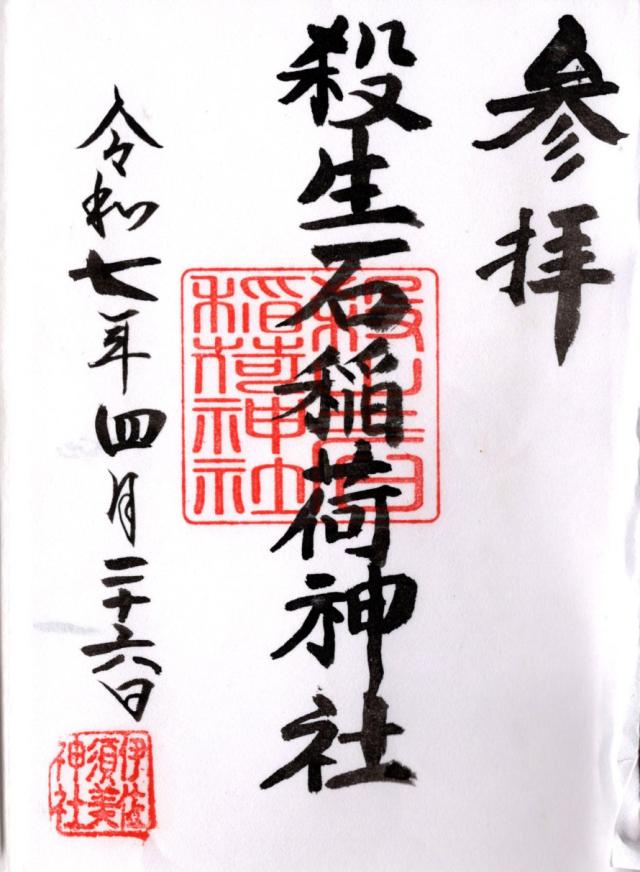 参拝
殺生石稲荷神社
令和七年四月二十六日
殺生石
稲荷神社
伊佐
須美
神社